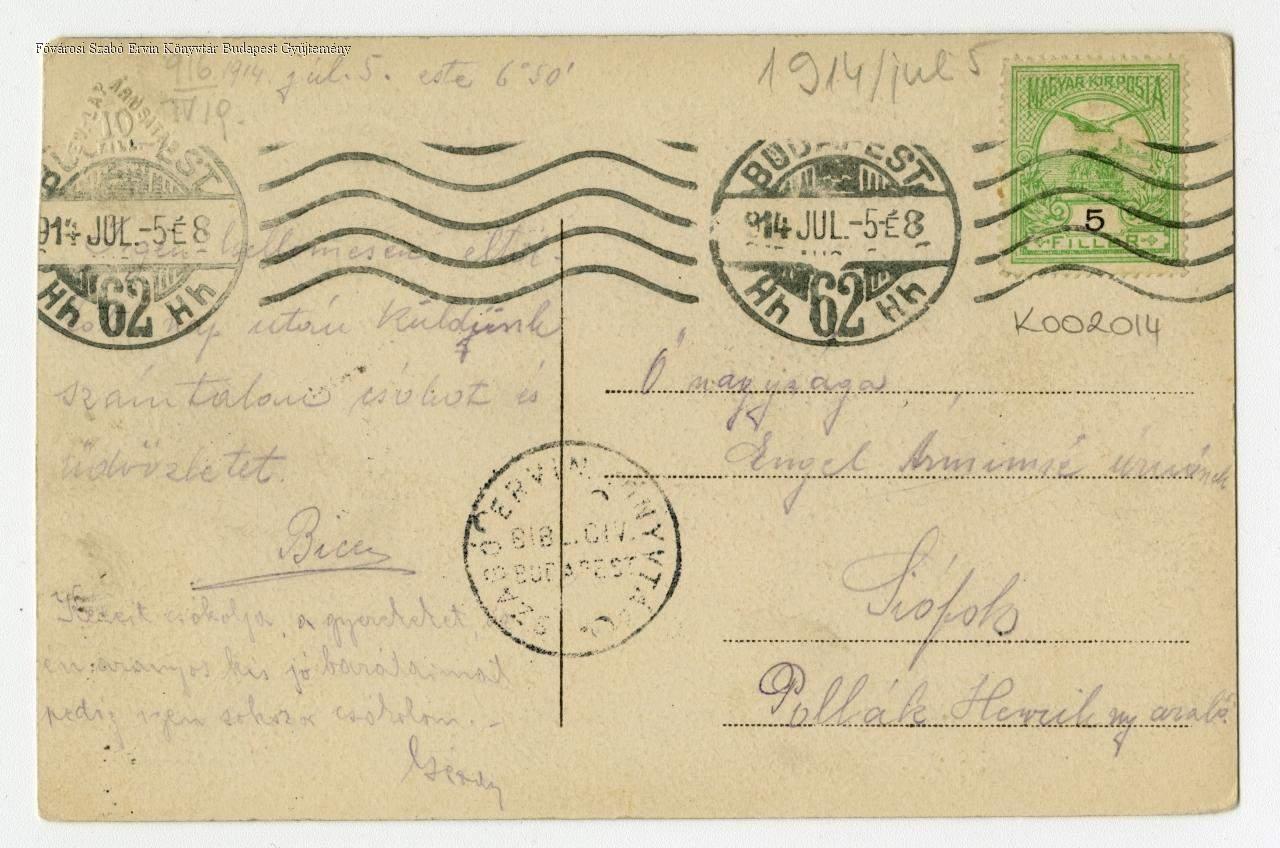 Fővárosi Szabó Ervin Könyvtár Budapest Gyűjtemény
916
IV 19.
1914. júl. 5. este 6°50'
1914/jul 5
LEV. LAP ÁRUSÍTÁS
10
FILL
BUDAPEST
914 JUL.-5-É8
Hh 62 Hh
BUDAPEST
914 JUL.-5-É8
Hh 62 Hh
MAGYAR KIR. POSTA
5
FILLÉR
K002014
Igen kellemesen eltöl-
nap után küldjünk
számtalan csókot és
üdvözletet.
Kezeit csókolja, a gyerekeket,
én aranyos kis jó barátaimat
pedig igen sokszor csókolom.-
Gerdy
SZABÓ ERVIN KÖNYVTÁR
BUDAPEST
Ő nagysága
Engel Árminné úrnőnek
Siófok
Pollák Henrik nyaraló